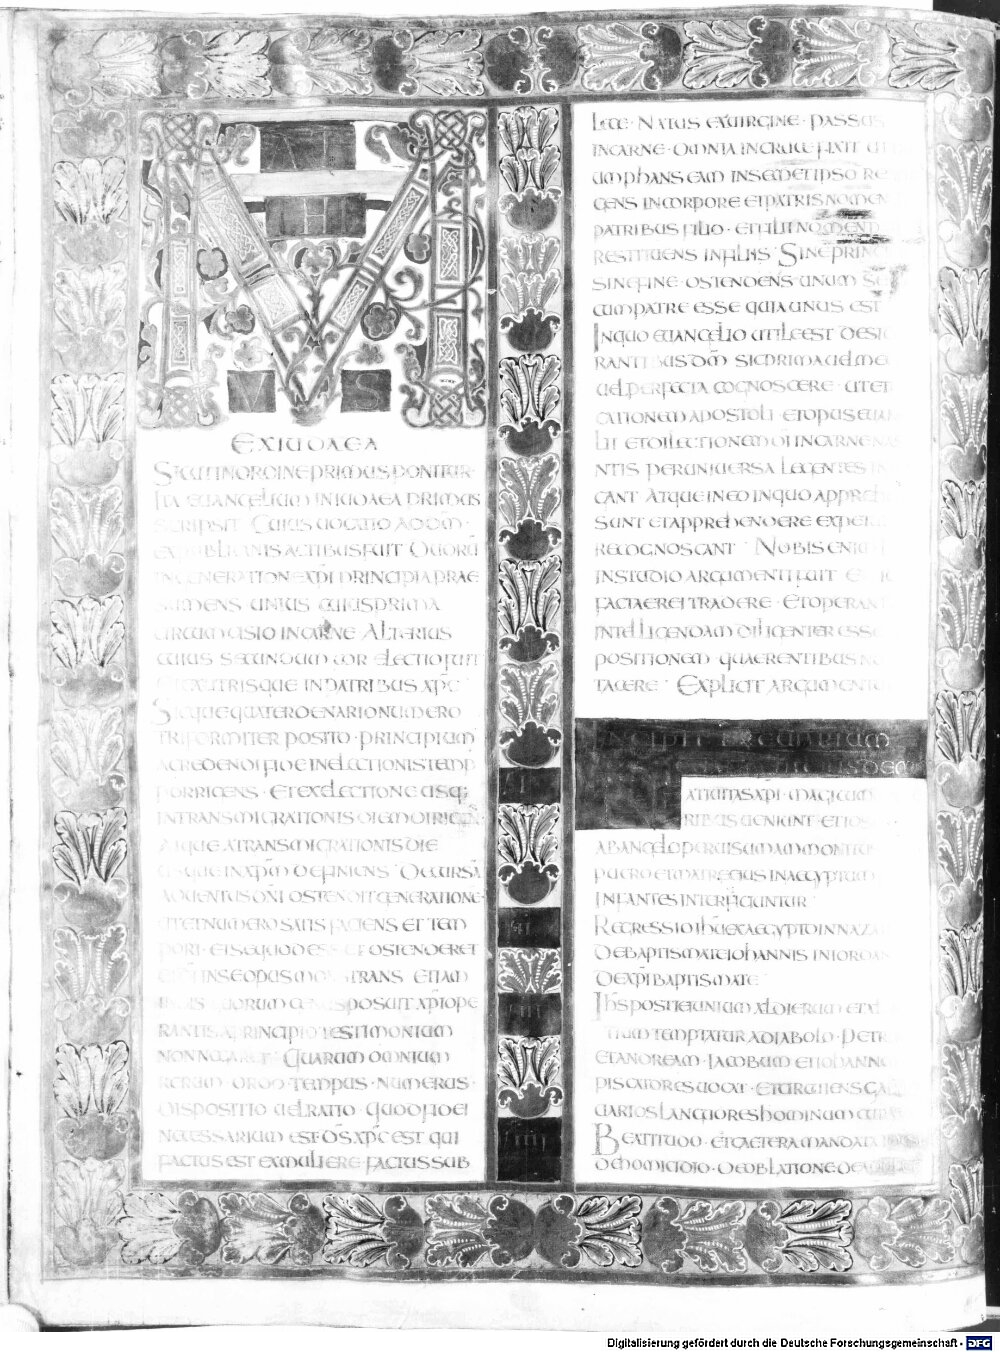 MATHEUS
EXIUDAEA
SICUTINORDINEPRIMUS PONITUR·
ITA EUANGELIUM INIUDAEA PRIMUS
SCRIPSIT· CUIUS UOCATIO ADDM̄·
EXPUBLICANIS ACTIBUSFUIT DUORŪ
INGENERATIONE XP̄I PRINCIPIA PRAE
SUMENS UNIUS CUIUSPRIMA
CIRCUMCISIO INCARNE ALTERIUS
CUIUS SECUNDUM COR ELECTIO FUIT
ETEXUTRISQUE INPATRIBUS XP̄C
SICQUEQUATERDENARIONUMERO
TRIFORMITER POSITO· PRINCIPIUM
ACREDENDI FIDE INELECTIONISTEMP
PORRIGENS· ETEXELECTIONE USQ;
INTRANSMIGRATIONIS DIEM DIRIGENS·
ATQUE ATRANSMIGRATIONIS DIE
USQUE INXP̄M DEFINIENS· DECURSĀ
ADUENTUS DN̄I OSTENDIT GENERATIONĒ·
UTETNUMERO SATIS FACIENS ET TEM
PORI· ETSEQUOD ESSET OSTENDERET
ETD̄I INSEOPUS MONSTRANS ETIAM
INHIS QUORUM GENUS POSUIT XP̄I OPE
RANTIS APRINCIPIO TESTIMONIUM
NONNEGARET· QUARUM OMNIUM
RERUM ORDO· TEMPUS· NUMERUS·
DISPOSITIO UELRATIO· QUODFIDEI
NECESSARIUM EST· DS̄ XP̄C EST QUI
FACTUSEST EXMULIERE· FACTUSSUB
LEGE· NATUS EXUIRGINE· PASSUS
INCARNE· OMNIA INCRUCE FIXIT UT
UMPHANS EAM INSEMETIPSO RE
GENS INCORPORE ETPATRISNOMEN
PATRIBUS FILIO· ETFILII NOMEN
RESTITUENS INFILIIS· SINEPRINC
SINEFINE· OSTENDENS UNUM SE
CUMPATRE ESSE QUIA UNUS EST
INQUO EUANGELIO UTILEEST DESI
RANTIBUS DM̄ SICPRIMA UELME
UELPERFECTA COGNOSCERE· UTET
CATIONEM APOSTOLI ETOPUS EUAN
LII ETDILECTIONEM D̄I INCARNENAS
NTIS PERUNIUERSA LEGENTES IN
GANT ATQUE INEO INQUO APPREHE
SUNT ETAPPREHENDERE EXPE
RECOGNOSCANT· NOBIS ENIM
INSTUDIO ARGUMENTI FUIT
FACTAEREI TRADERE· ETOPERANT
INTELLIGENDAM DILIGENTER ESSE
POSITIONEM QUAERENTIBUS N
TACERE· EXPLICIT ARGUMENTU
INCIPIT BREUIARIUM
NATIUITAS XP̄I· MAGICUM
RIBUS UENIUNT· ETIOS
ABANGELOPERUISUMAMMONITUS
PUERO ETMATREEIUS INAEGYPTUM
INFANTES INTERFICIUNTUR·
REGRESSIO IH̄U EXAEGYPTO INNAZA
DEBAPTISMATEIOHANNIS INIORDA
DEXP̄I BAPTISMATE·
IHS̄ POSTIEIUNIUM XLDIERUM ETX
TIUM TEMPTATUR ADIABOLO· PETR
ETANDREAM· IACOBUM ETIOHANNE
PISCATORES UOCAT·
UARIOS LANGUORES HOMINUM CURA
BEATITUDO· ETCAETERA MANDATA
DEHOMICIDIO· DEOBLATIONE DE